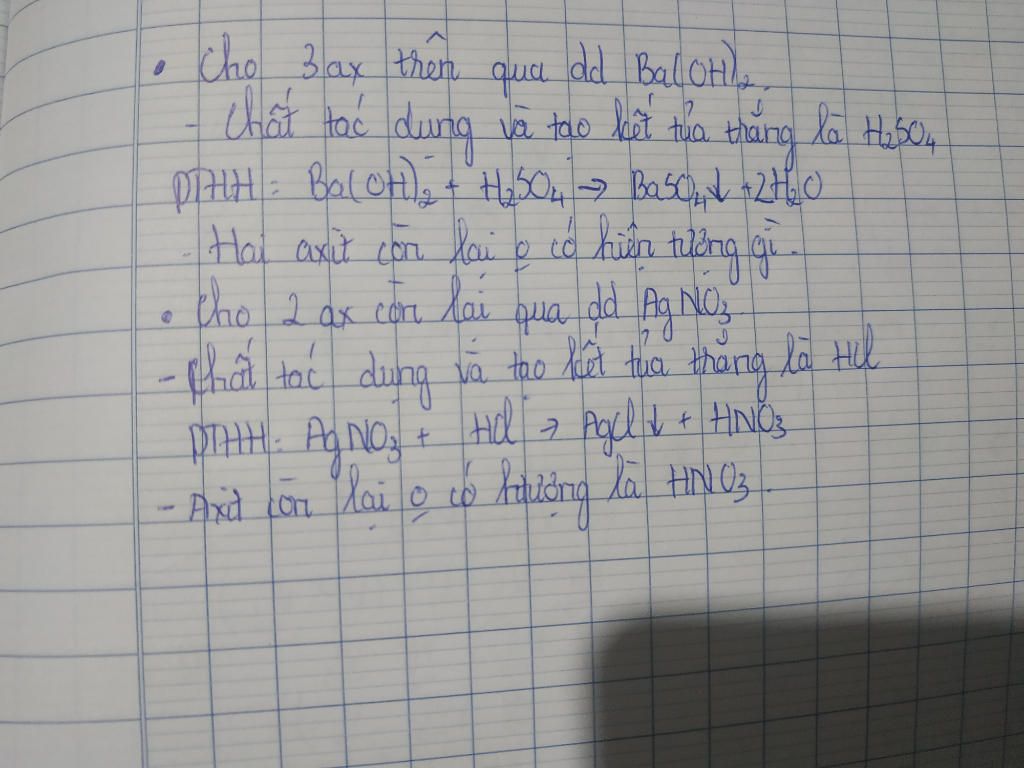 • Cho 3 ax trên qua dd Ba(OH)₂.
- Chất tác dụng và tạo kết tủa trắng là H₂SO₄
PTHH: Ba(OH)₂ + H₂SO₄ → BaSO₄↓ + 2H₂O
- Hai axit còn lại o có hiện tượng gì.
• Cho 2 ax còn lại qua dd AgNO₃
- Chất tác dụng và tạo kết tủa trắng là HCl
PTHH: AgNO₃ + HCl → AgCl↓ + HNO₃
- Axit còn lại o có htượng là HNO₃.